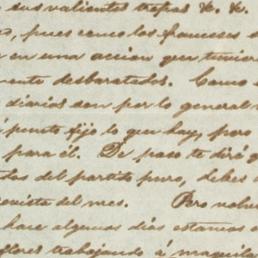 sus valientes tropas &. &.
pues como los franceses
en una accion que tuvier
mente desbaratados. Como
diarios son por lo general
á punto fijo lo que hay, pero
para él. De paso te diré q
del partido puro, debes
revista del mes. Pero
hace algunos dias estamos
flores trabajando á maquila